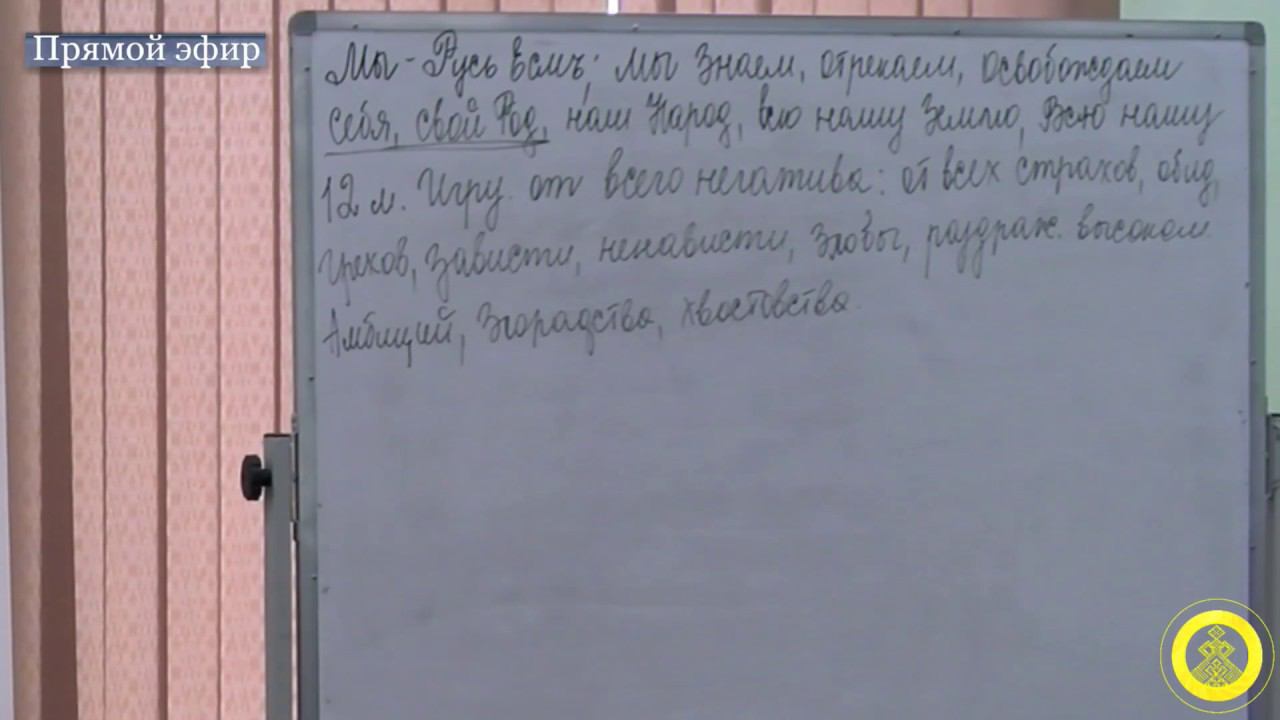 Прямой эфир
Мы - Русь Есмъ; мы Знаем, отрекаем, освобождаем
себя, свой Род, наш Народ, всю нашу Землю, Всю нашу
12 м. Игру. от всего негатива: от всех страхов, обид,
грехов, зависти, ненависти, Злобы, раздраж. высоком.
Амбиций, Злорадства, хвостовства.